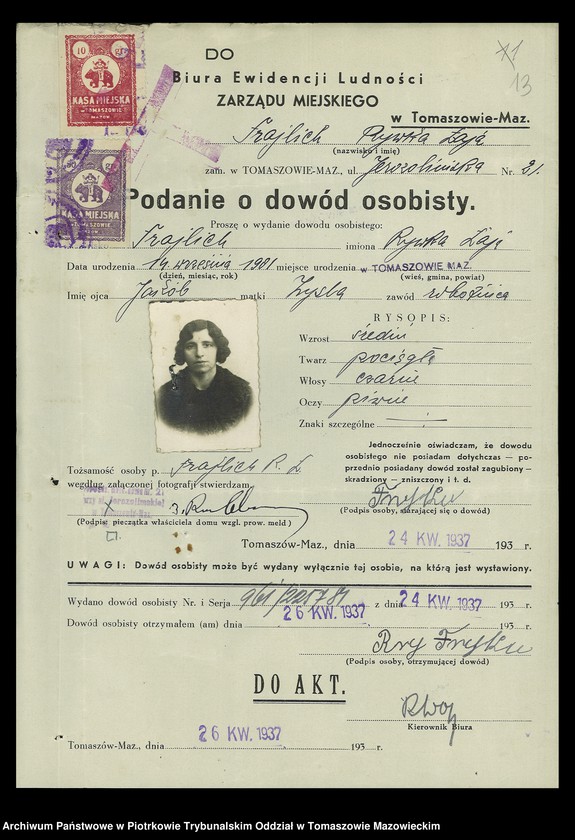 DO
Biura Ewidencji Ludności
ZARZĄDU MIEJSKIEGO
w Tomaszowie-Maz.
13
10 gr
KASA MIEJSKA
W TOMASZOWIE
MAZOW.
Frajlich Rywka Łaja
(nazwisko i imię)
zam. w TOMASZOWIE-MAZ., ul. Jerozolimska Nr. 21.
KASA MIEJSKA
W TOMASZOWIE
MAZOW.
Podanie o dowód osobisty.
Proszę o wydanie dowodu osobistego:
Frajlich imiona Rywka Łaja
Data urodzenia 14 września 1901 miejsce urodzenia w TOMASZOWIE MAZ.
(dzień, miesiąc, rok) (wieś, gmina, powiat)
Imię ojca Jakób matki Zysla zawód robotnica
RYSOPIS:
Wzrost średni
Twarz pociągła
Włosy czarne
Oczy piwne
Znaki szczególne
Jednocześnie oświadczam, że dowodu
osobistego nie posiadam dotychczas — po-
przednio posiadany dowód został zagubiony —
skradziony — zniszczony i t. d.
Tożsamość osoby p. Frajlich R. Ł.
według załączonej fotografji stwierdzam
(Podpis: pieczątka właściciela domu wzgl. prow. meld)
(Podpis osoby, starającej się o dowód)
Tomaszów-Maz., dnia 24 KW. 1937 193 r.
UWAGI: Dowód osobisty może być wydany wyłącznie tej osobie, na którą jest wystawiony.
Wydano dowód osobisty Nr. i Serja 961/225781 z dnia 24 KW. 1937 193 r.
Dowód osobisty otrzymałem (am) dnia 26 KW. 1937 193 r.
(Podpis osoby, otrzymującej dowód)
DO AKT.
Kierownik Biura
Tomaszów-Maz., dnia 26 KW. 1937 193 r.
Archiwum Państwowe w Piotrkowie Trybunalskim Oddział w Tomaszowie Mazowieckim